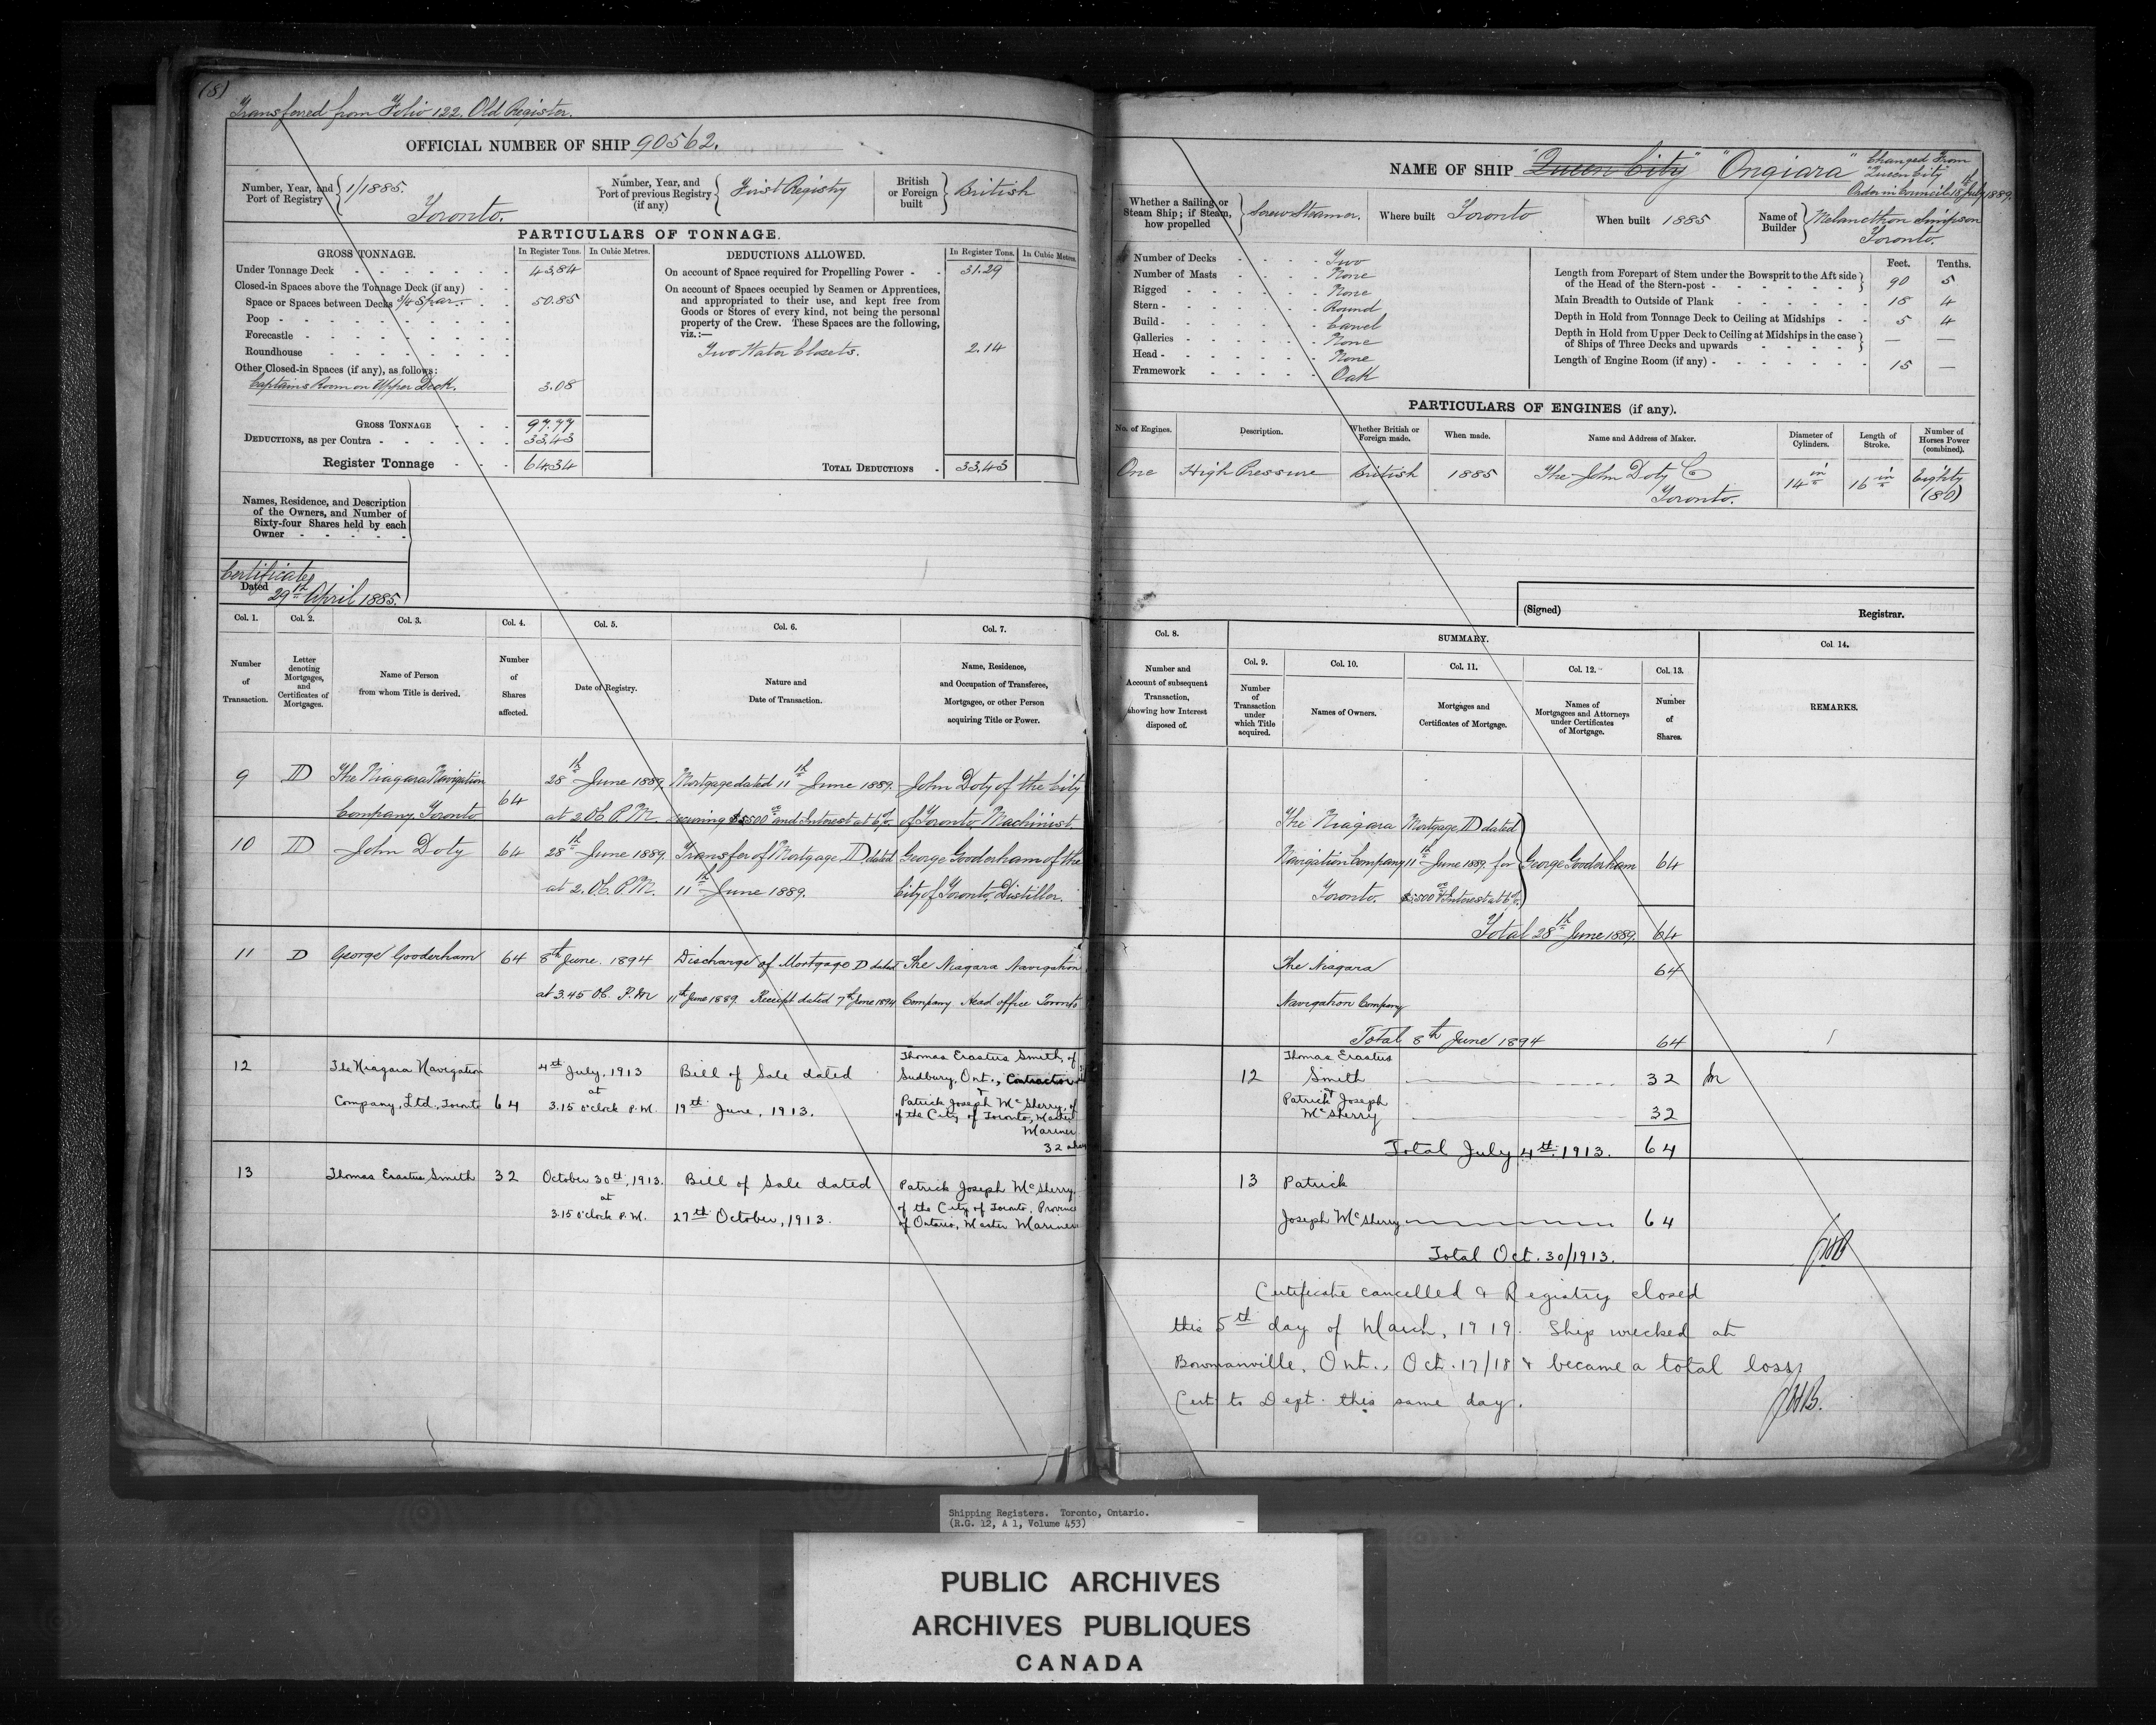 (8)
Transferred from Folio 122. Old Register.
OFFICIAL NUMBER OF SHIP 90562.
Number, Year, and Port of Registry 1/1885. Toronto.
Number, Year, and Port of previous Registry (if any) First Registry
British or Foreign built British
PARTICULARS OF TONNAGE.
GROSS TONNAGE. In Register Tons. In Cubic Metres.
Under Tonnage Deck 43.84
Closed-in Spaces above the Tonnage Deck (if any)
Space or Spaces between Decks 3/4 Spar. 50.85
Poop
Forecastle
Roundhouse
Other Closed-in Spaces (if any), as follows:
Captains Room on Upper Deck. 3.08
GROSS TONNAGE 97.77
DEDUCTIONS, as per Contra 33.43
Register Tonnage 64.34
DEDUCTIONS ALLOWED. In Register Tons. In Cubic Metres.
On account of Space required for Propelling Power 31.29
On account of Spaces occupied by Seamen or Apprentices,
and appropriated to their use, and kept free from
Goods or Stores of every kind, not being the personal
property of the Crew. These Spaces are the following,
viz.:—
Two Water Closets. 2.14
TOTAL DEDUCTIONS 33.43
Names, Residence, and Description
of the Owners, and Number of
Sixty-four Shares held by each
Owner
Certificate
Dated 29th April 1885.
Col. 1. Col. 2. Col. 3. Col. 4. Col. 5. Col. 6. Col. 7.
Number of Transaction.
Letter denoting Mortgages, and Certificates of Mortgages.
Name of Person from whom Title is derived.
Number of Shares affected.
Date of Registry.
Nature and Date of Transaction.
Name, Residence, and Occupation of Transferee, Mortgagee, or other Person acquiring Title or Power.
9 D The Niagara Navigation Company Toronto 64 28th June 1889. at 2 Oc P.M. Mortgage dated 11th June 1889. securing $5500 00 and Interest at 6%. John Doty of the City of Toronto, Machinist.
10 D John Doty 64 28th June 1889. at 2. Oc. P.M. Transfer of Mortgage D dated 11th June 1889. George Gooderham of the City of Toronto, Distiller.
11 D George Gooderham 64 8th June. 1894 at 3.45 Oc. P.M Discharge of Mortgage D dated 11th June 1889. Receipt dated 7th June 1894 The Niagara Navigation Company Head office Toronto
12 The Niagara Navigation Company, Ltd., Toronto 64 4th July, 1913 at 3.15 o'clock P.M. Bill of Sale dated 19th June, 1913. Thomas Erastus Smith, of Sudbury, Ont., Contractor
& Patrick Joseph McSherry, of
of the City of Toronto, Master
Mariner
32
13 Thomas Erastus Smith 32 October 30th, 1913. at 3.15 o'clock P.M. Bill of Sale dated 27th October, 1913. Patrick Joseph McSherry, of the City of Toronto, Province of Ontario, Master Mariner
NAME OF SHIP "Queen City" "Ongiara" Changed From
Queen City
Order in Council 18th July 1889.
Whether a Sailing or Steam Ship; if Steam, how propelled Screw Steamer.
Where built Toronto
When built 1885
Name of Builder Melancthon Simpson
Toronto.
Number of Decks Two
Number of Masts None
Rigged None
Stern Round
Build Carvel
Galleries None
Head None
Framework Oak
Feet. Tenths.
Length from Forepart of Stem under the Bowsprit to the Aft side of the Head of the Stern-post 90 5
Main Breadth to Outside of Plank 18 4
Depth in Hold from Tonnage Deck to Ceiling at Midships 5 4
Depth in Hold from Upper Deck to Ceiling at Midships in the case of Ships of Three Decks and upwards — —
Length of Engine Room (if any) 15 —
PARTICULARS OF ENGINES (if any).
No. of Engines. Description. Whether British or Foreign made. When made. Name and Address of Maker. Diameter of Cylinders. Length of Stroke. Number of Horses Power (combined).
One High Pressure British 1885 The John Doty Co Toronto. 14 in 16 in Eighty (80)
(Signed) Registrar.
Col. 8. SUMMARY. Col. 14.
Col. 9. Col. 10. Col. 11. Col. 12. Col. 13.
Number and Account of subsequent Transaction, showing how Interest disposed of.
Number of Transaction under which Title acquired.
Names of Owners.
Mortgages and Certificates of Mortgage.
Names of Mortgagees and Attorneys under Certificates of Mortgage.
Number of Shares.
REMARKS.
The Niagara Navigation Company Toronto. Mortgage D dated 11th June 1889. for $5500 00 & Interest at 6%. George Gooderham 64
Total 28th June 1889. 64
The Niagara 64
Navigation Company
Total 8th June 1894 64
12 Thomas Erastus Smith 32
& Patrick Joseph McSherry 32
Total July 4th. 1913. 64
13 Patrick
Joseph McSherry 64
Total Oct. 30/1913.
Certificate cancelled & Registry closed
this 5th day of March, 1919. Ship wrecked at
Bowmanville, Ont., Oct. 17/18 & became a total loss,
Cert to Dept. this same day.
Shipping Registers. Toronto, Ontario.
(R.G. 12, A 1, Volume 453)
PUBLIC ARCHIVES
ARCHIVES PUBLIQUES
CANADA